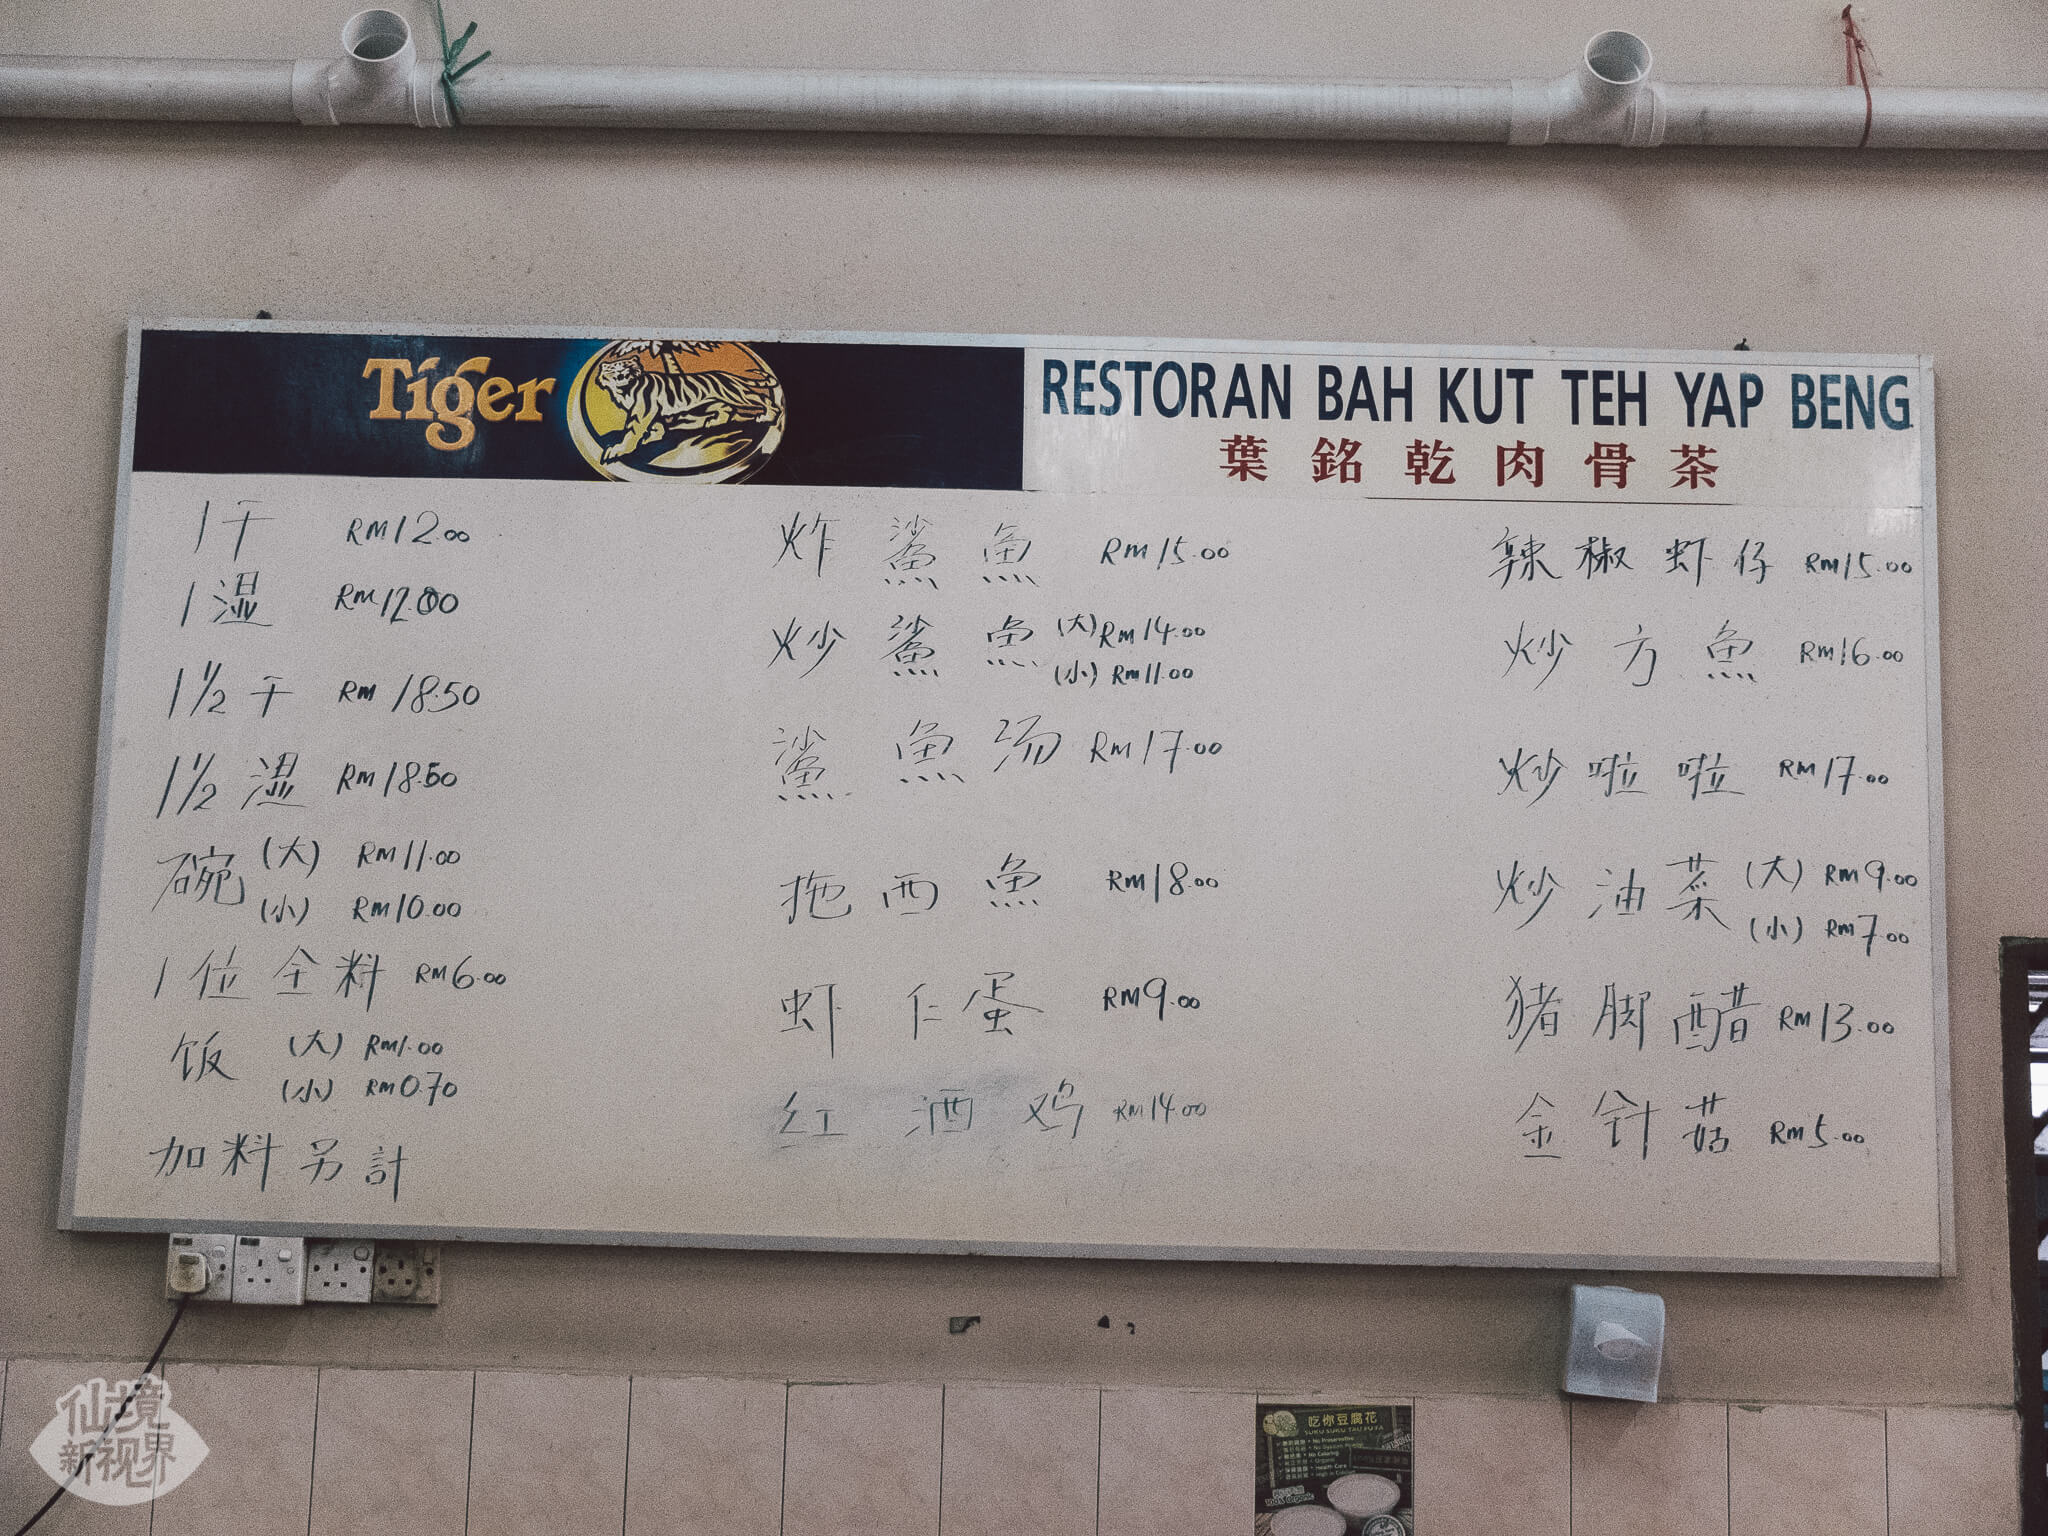 Tiger
RESTORAN BAH KUT TEH YAP BENG
葉銘乾肉骨茶
1干 RM12.00
1湿 RM12.00
1 1/2干 RM18.50
1 1/2湿 RM18.50
碗(大) RM11.00
(小) RM10.00
1位全料 RM6.00
饭 (大) RM1.00
(小) RM0.70
加料另計
炸鯊魚 RM15.00
炒鯊魚(大)RM14.00
(小) RM11.00
鯊魚汤 RM17.00
拖西魚 RM18.00
虾仁蛋 RM9.00
红酒鸡 RM14.00
辣椒虾仔 RM15.00
炒方魚 RM16.00
炒啦啦 RM17.00
炒油菜(大) RM9.00
(小) RM7.00
猪脚醋 RM13.00
金针菇 RM5.00
仙境
新视界
吃你豆腐花
SUKU SUKU TAU FU FA
No Preservative
No Coloring
Organic
Health Care
100% Organic